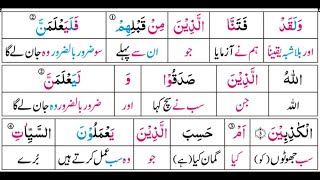 وَلَقَدْ فَتَنَّا الَّذِيْنَ مِنْ قَبْلِهِمْ ① فَلَيَعْلَمَنَّ ②
اور بلاشبہ یقیناً ہم نے آزمایا جو ان سے پہلے سو ضرور بالضرور وہ جان لے گا
اللّٰهُ الَّذِيْنَ صَدَقُوْا وَ لَيَعْلَمَنَّ
اللہ جن سب نے سچ کہا اور ضرور بالضرور وہ جان لے گا
الْكٰذِبِيْنَ اَمْ حَسِبَ الَّذِيْنَ يَعْمَلُوْنَ السَّيِّاٰتِ
سب جھوٹوں (کو) کیا گمان کیا (ہے) جو وہ سب عمل کرتے ہیں بُرے